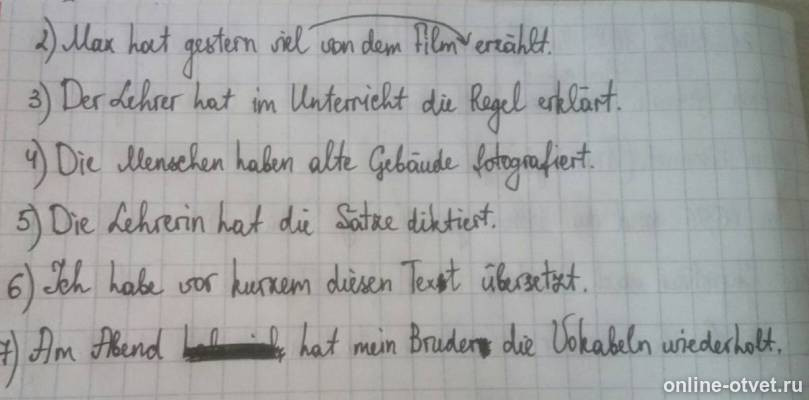 2) Max hat gestern viel von dem Film erzählt.
3) Der Lehrer hat im Unterricht die Regel erklärt.
4) Die Menschen haben alte Gebäude fotografiert.
5) Die Lehrerin hat die Sätze diktiert.
6) Ich habe vor kurzem diesen Text übersetzt.
7) Am Abend hat mein Bruder die Vokabeln wiederholt.
online-otvet.ru